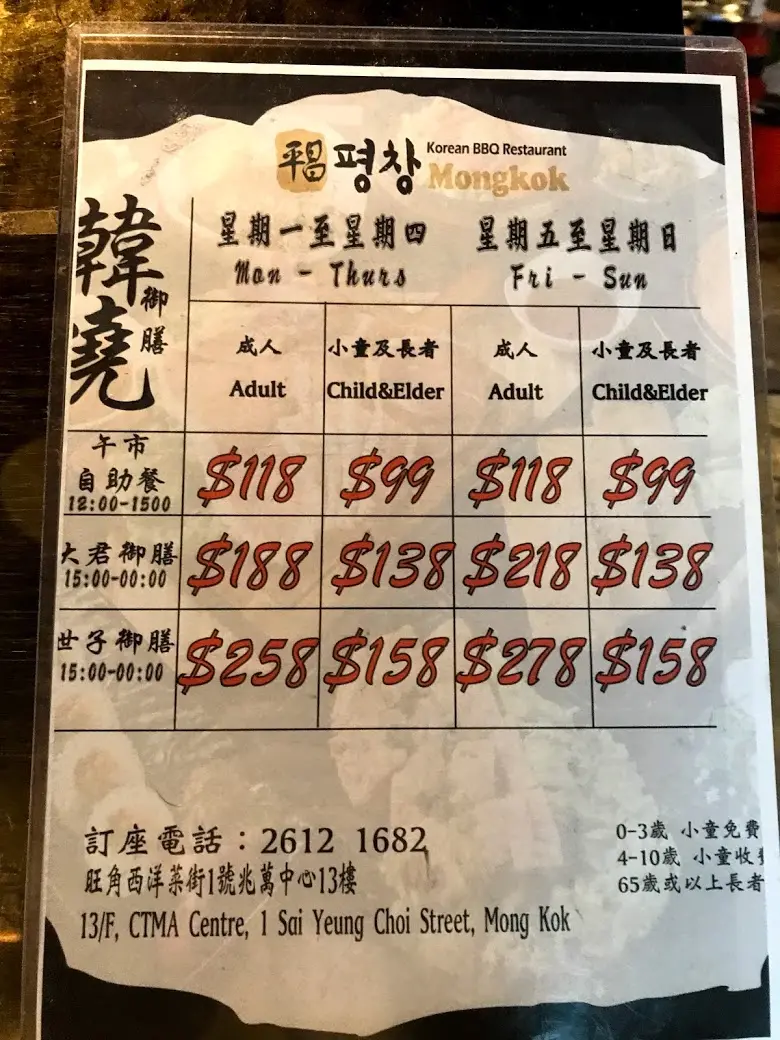 平昌 평창 Korean BBQ Restaurant
Mongkok
韓燒
御膳
星期一至星期四 星期五至星期日
Mon - Thurs Fri - Sun
成人 小童及長者 成人 小童及長者
Adult Child&Elder Adult Child&Elder
午市
自助餐
12:00-1500
$118 $99 $118 $99
大君御膳
15:00-00:00
$188 $138 $218 $138
世子御膳
15:00-00:00
$258 $158 $278 $158
訂座電話：2612 1682
旺角西洋菜街1號兆萬中心13樓
13/F, CTMA Centre, 1 Sai Yeung Choi Street, Mong Kok
0-3歲 小童免費
4-10歲 小童收費
65歲或以上長者